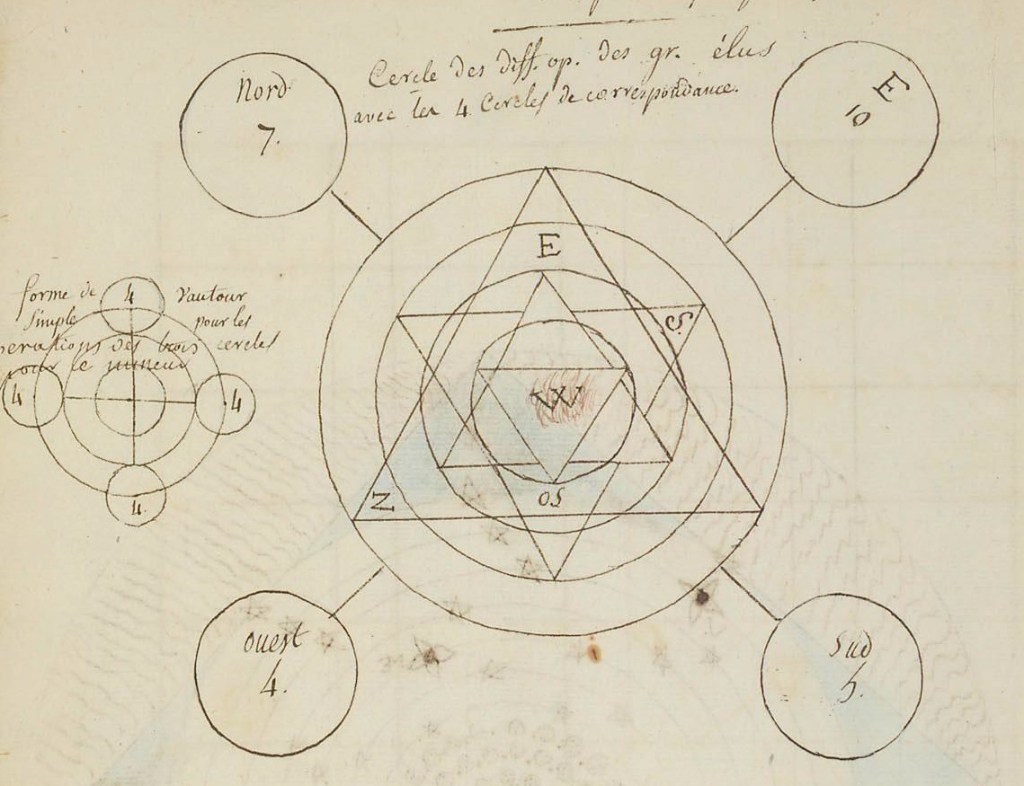 Cercle des diff. op. des gr. élus
avec les 4 Cercles de correspondance.
Nord
7.
E
10
E
S.
W
N
50
forme de l'autour
simple pour les
operations des trois cercles
pour le mineur
4
4
4
4.
ouest
4.
Sud
5.